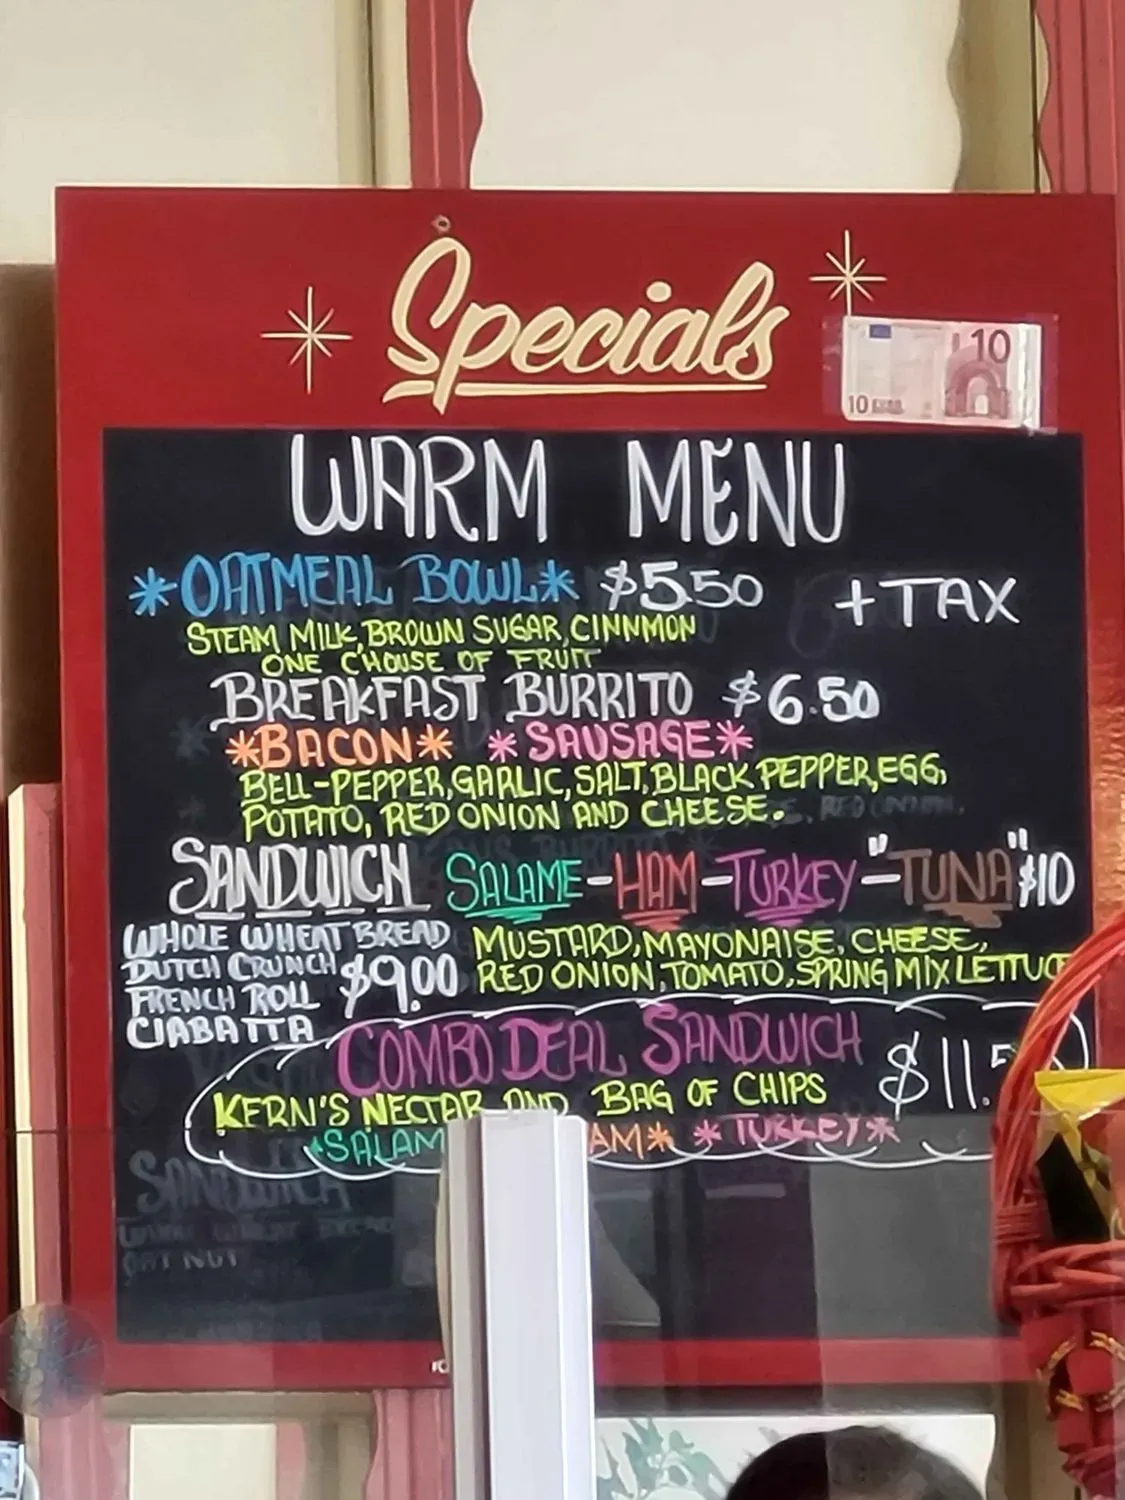 Specials
10
10 EURO
WARM MENU
*OATMEAL BOWL* $5.50 + TAX
STEAM MILK, BROWN SUGAR, CINNMON
ONE C'HOUSE OF FRUIT
BREAKFAST BURRITO $6.50
*BACON* *SAUSAGE*
BELL-PEPPER, GARLIC, SALT, BLACK PEPPER, EGG,
POTATO, RED ONION AND CHEESE.
SANDWICH SALAME-HAM-TURKEY-"TUNA" $10
WHOLE WHEAT BREAD
DUTCH CRUNCH $9.00
FRENCH ROLL
CIABATTA
MUSTARD, MAYONAISE, CHEESE,
RED ONION, TOMATO, SPRING MIX LETTUCE
COMBO DEAL SANDWICH $11.5
KERN'S NECTAR AND BAG OF CHIPS
*SALAM AM* *TURKEY*
SANDWICH
OAT NUT